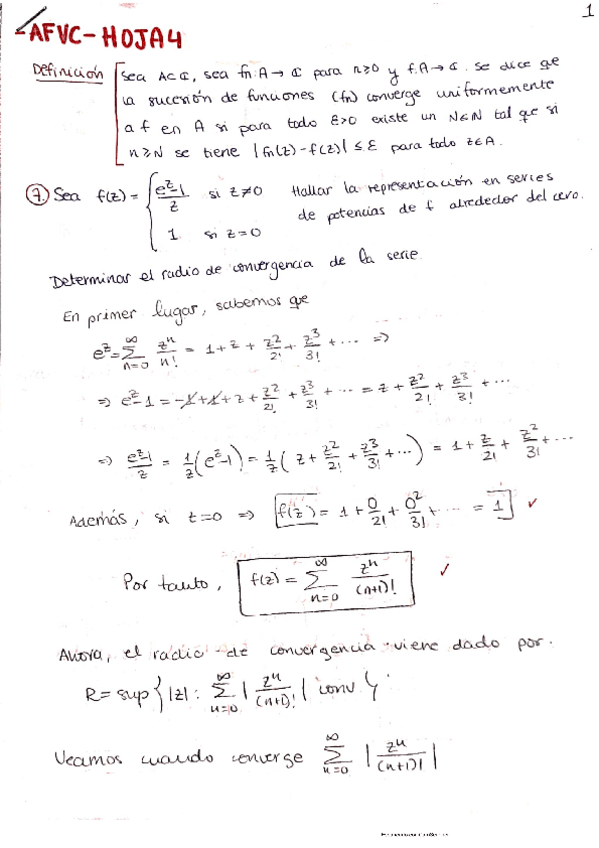 1
AFVC-HOJA4
Definición
Sea A⊂ℂ, sea fn: A→ℂ para n≥0 y f: A→ℂ. Se dice que
la sucesión de funciones (fn) converge uniformemente
a f en A si para todo ε>0 existe un N∈ℕ tal que si
n≥N se tiene |fn(z)-f(z)| ≤ ε para todo z∈A.
7. Sea f(z) = { (e^z-1)/z si z≠0 Hallar la representación en series
1 si z=0 de potencias de f alrededor del cero.
Determinar el radio de convergencia de la serie.
En primer lugar, sabemos que
e^z = ∑_{n=0}^{∞} z^n/n! = 1 + z + z^2/2! + z^3/3! + ... ⇒
⇒ e^z-1 = -1+1+z+z^2/2! + z^3/3! + ... = z + z^2/2! + z^3/3! + ...
⇒ (e^z-1)/z = 1/z (e^z-1) = 1/z (z + z^2/2! + z^3/3! + ...) = 1 + z/2! + z^2/3! + ...
Además, si z=0 ⇒ f(z) = 1 + 0/2! + 0^2/3! + ... = 1 ✓
Por tanto, f(z) = ∑_{n=0}^{∞} z^n/(n+1)! ✓
Ahora, el radio de convergencia viene dado por:
R = sup { |z| : ∑_{n=0}^{∞} | z^n/(n+1)! | conv }
Veamos cuando converge ∑_{n=0}^{∞} | z^n/(n+1)! |